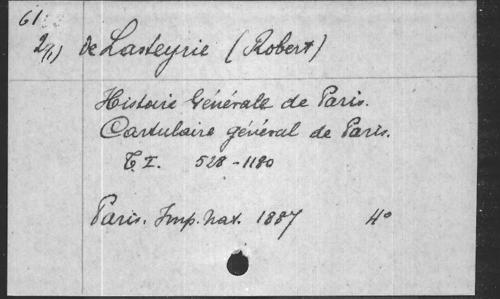 61
2/1) de Lasteyrie (Robert)
Histoire Générale de Paris.
Cartulaire général de Paris.
T I. 528-1180
Paris. Imp. nat. 1887 4°